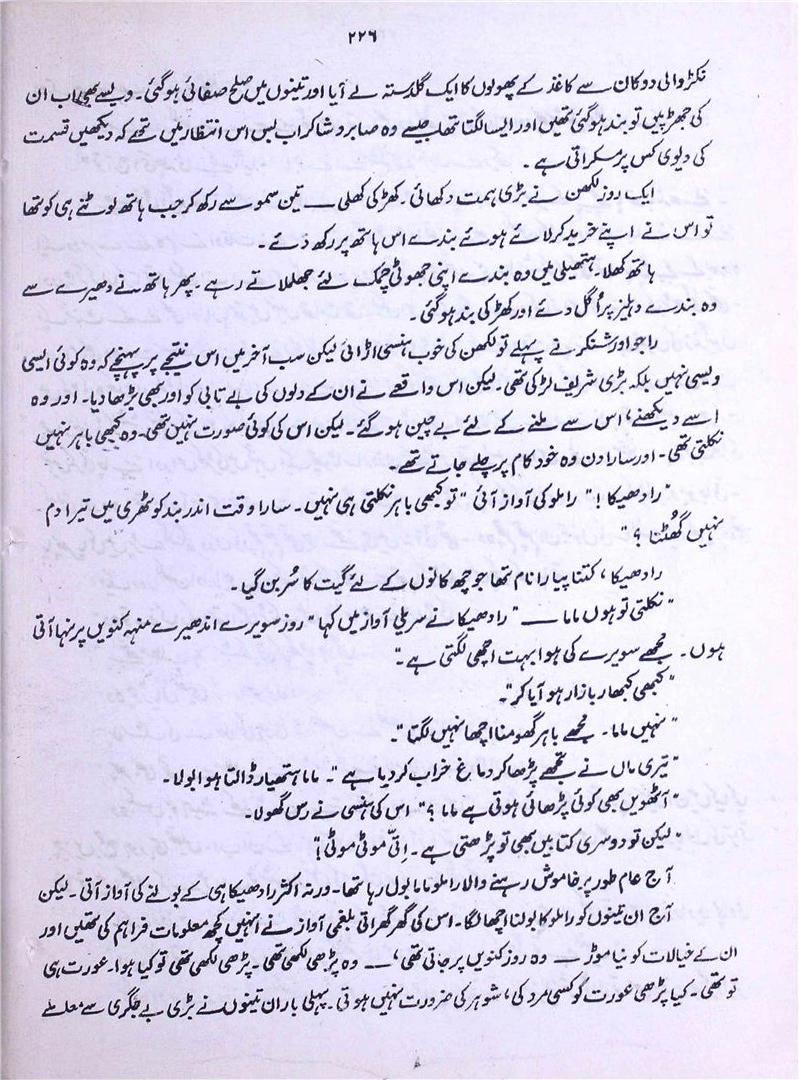 ۲۲۶
نکڑ والی دوکان سے کاغذ کے پھولوں کا ایک گلدستہ لے آیا اور تینوں میں صلح صفائی ہوگئی۔ ویسے بھی اب ان
کی جھڑپیں تو بند ہوگئی تھیں اور ایسا لگتا تھا جیسے وہ صابر و شاکر اب بس اس انتظار میں تھے کہ دیکھیں قسمت
کی دیوی کس پر مسکراتی ہے۔
ایک روز لکھن نے بڑی ہمت دکھائی۔ کھڑکی کھلی — تین سموسے رکھ کر جب ہاتھ لوٹنے ہی کو تھا
تو اس نے اپنے خرید کر لائے ہوئے بندے اس ہاتھ پر رکھ دئے۔
ہاتھ کھلا۔ ہتھیلی میں وہ بندے اپنی جھوٹی چمک لئے جھلملاتے رہے۔ پھر ہاتھ نے دھیرے سے
وہ بندے دہلیز پر اُگل دئے اور کھڑکی بند ہوگئی۔
راجو اور شنکر نے پہلے تو لکھن کی خوب ہنسی اڑائی لیکن سب آخر میں اس نتیجے پر پہنچے کہ وہ کوئی ایسی
ویسی نہیں بلکہ بڑی شریف لڑکی تھی۔ لیکن اس واقعے نے ان کے دلوں کی بے تابی کو اور بھی بڑھا دیا۔ اور وہ
اسے دیکھنے، اس سے ملنے کے لئے بے چین ہوگئے۔ لیکن اس کی کوئی صورت نہیں تھی۔ وہ کبھی باہر نہیں
نکلتی تھی۔ اور سارا دن وہ خود کام پر چلے جاتے تھے۔
"رادھیکا!" راملو کی آواز آئی "تو کبھی باہر نکلتی ہی نہیں۔ سارا وقت اندر بند کوٹھری میں تیرا دم
نہیں گھُٹتا؟"
رادھیکا، کتنا پیارا نام تھا جو چھ کانوں کے لئے گیت کا سُر بن گیا۔
"نکلتی تو ہوں ماما — " رادھیکا نے سریلی آواز میں کہا "روز سویرے اندھیرے منہہ کنویں پر نہا آتی
ہوں۔ مجھے سویرے کی ہوا بہت اچھی لگتی ہے۔"
"کبھی کبھار بازار ہو آیا کر۔"
"نہیں ماما۔ مجھے باہر گھومنا اچھا نہیں لگتا۔"
"تیری ماں نے تجھے پڑھا کر دماغ خراب کر دیا ہے۔" ماما ہتھیار ڈالتا ہوا بولا۔
"آٹھویں بھی کوئی پڑھائی ہوتی ہے ماما؟" اس کی ہنسی نے رس گھولا۔
"لیکن تو دوسری کتابیں بھی تو پڑھتی ہے۔ اِتّی موٹی موٹی!"
آج عام طور پر خاموش رہنے والا راملو ماما بول رہا تھا۔ ورنہ اکثر رادھیکا ہی کے بولنے کی آواز آتی۔ لیکن
آج ان تینوں کو راملو کا بولنا اچھا لگا۔ اس کی گھرگھراتی بلغمی آواز نے انہیں کچھ معلومات فراہم کی تھیں اور
ان کے خیالات کو نیا موڑ — وہ روز کنویں پر جاتی تھی، — وہ پڑھی لکھی تھی۔ پڑھی لکھی تھی تو کیا ہوا۔ عورت ہی
تو تھی۔ کیا پڑھی عورت کو کسی مرد کی، شوہر کی ضرورت نہیں ہوتی۔ پہلی بار ان تینوں نے بڑی بے جگری سے معاملے